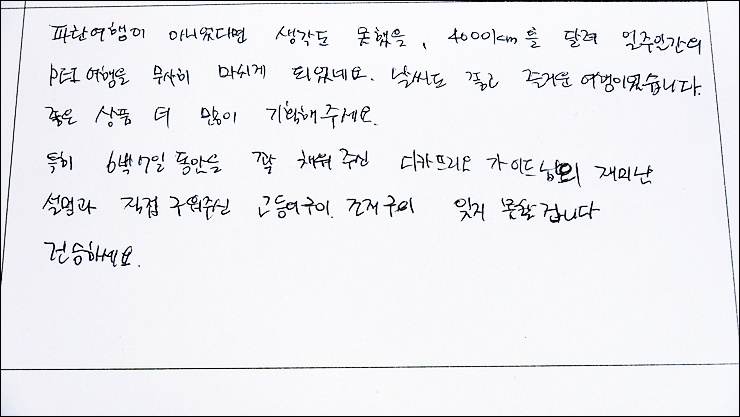 파란여행이 아니었다면 생각도 못했을, 4000km를 달려 일주일간의
PEI 여행을 무사히 마치게 되었네요. 날씨도 좋고 즐거운 여행이었습니다.
좋은 상품 더 많이 기획해주세요.
특히 6박7일 동안을 꽉 채워 주신 디카프리오 가이드님의 재미난
설명과 직접 구워주신 고등어구이. 조개구이 잊지 못할겁니다
건승하세요.